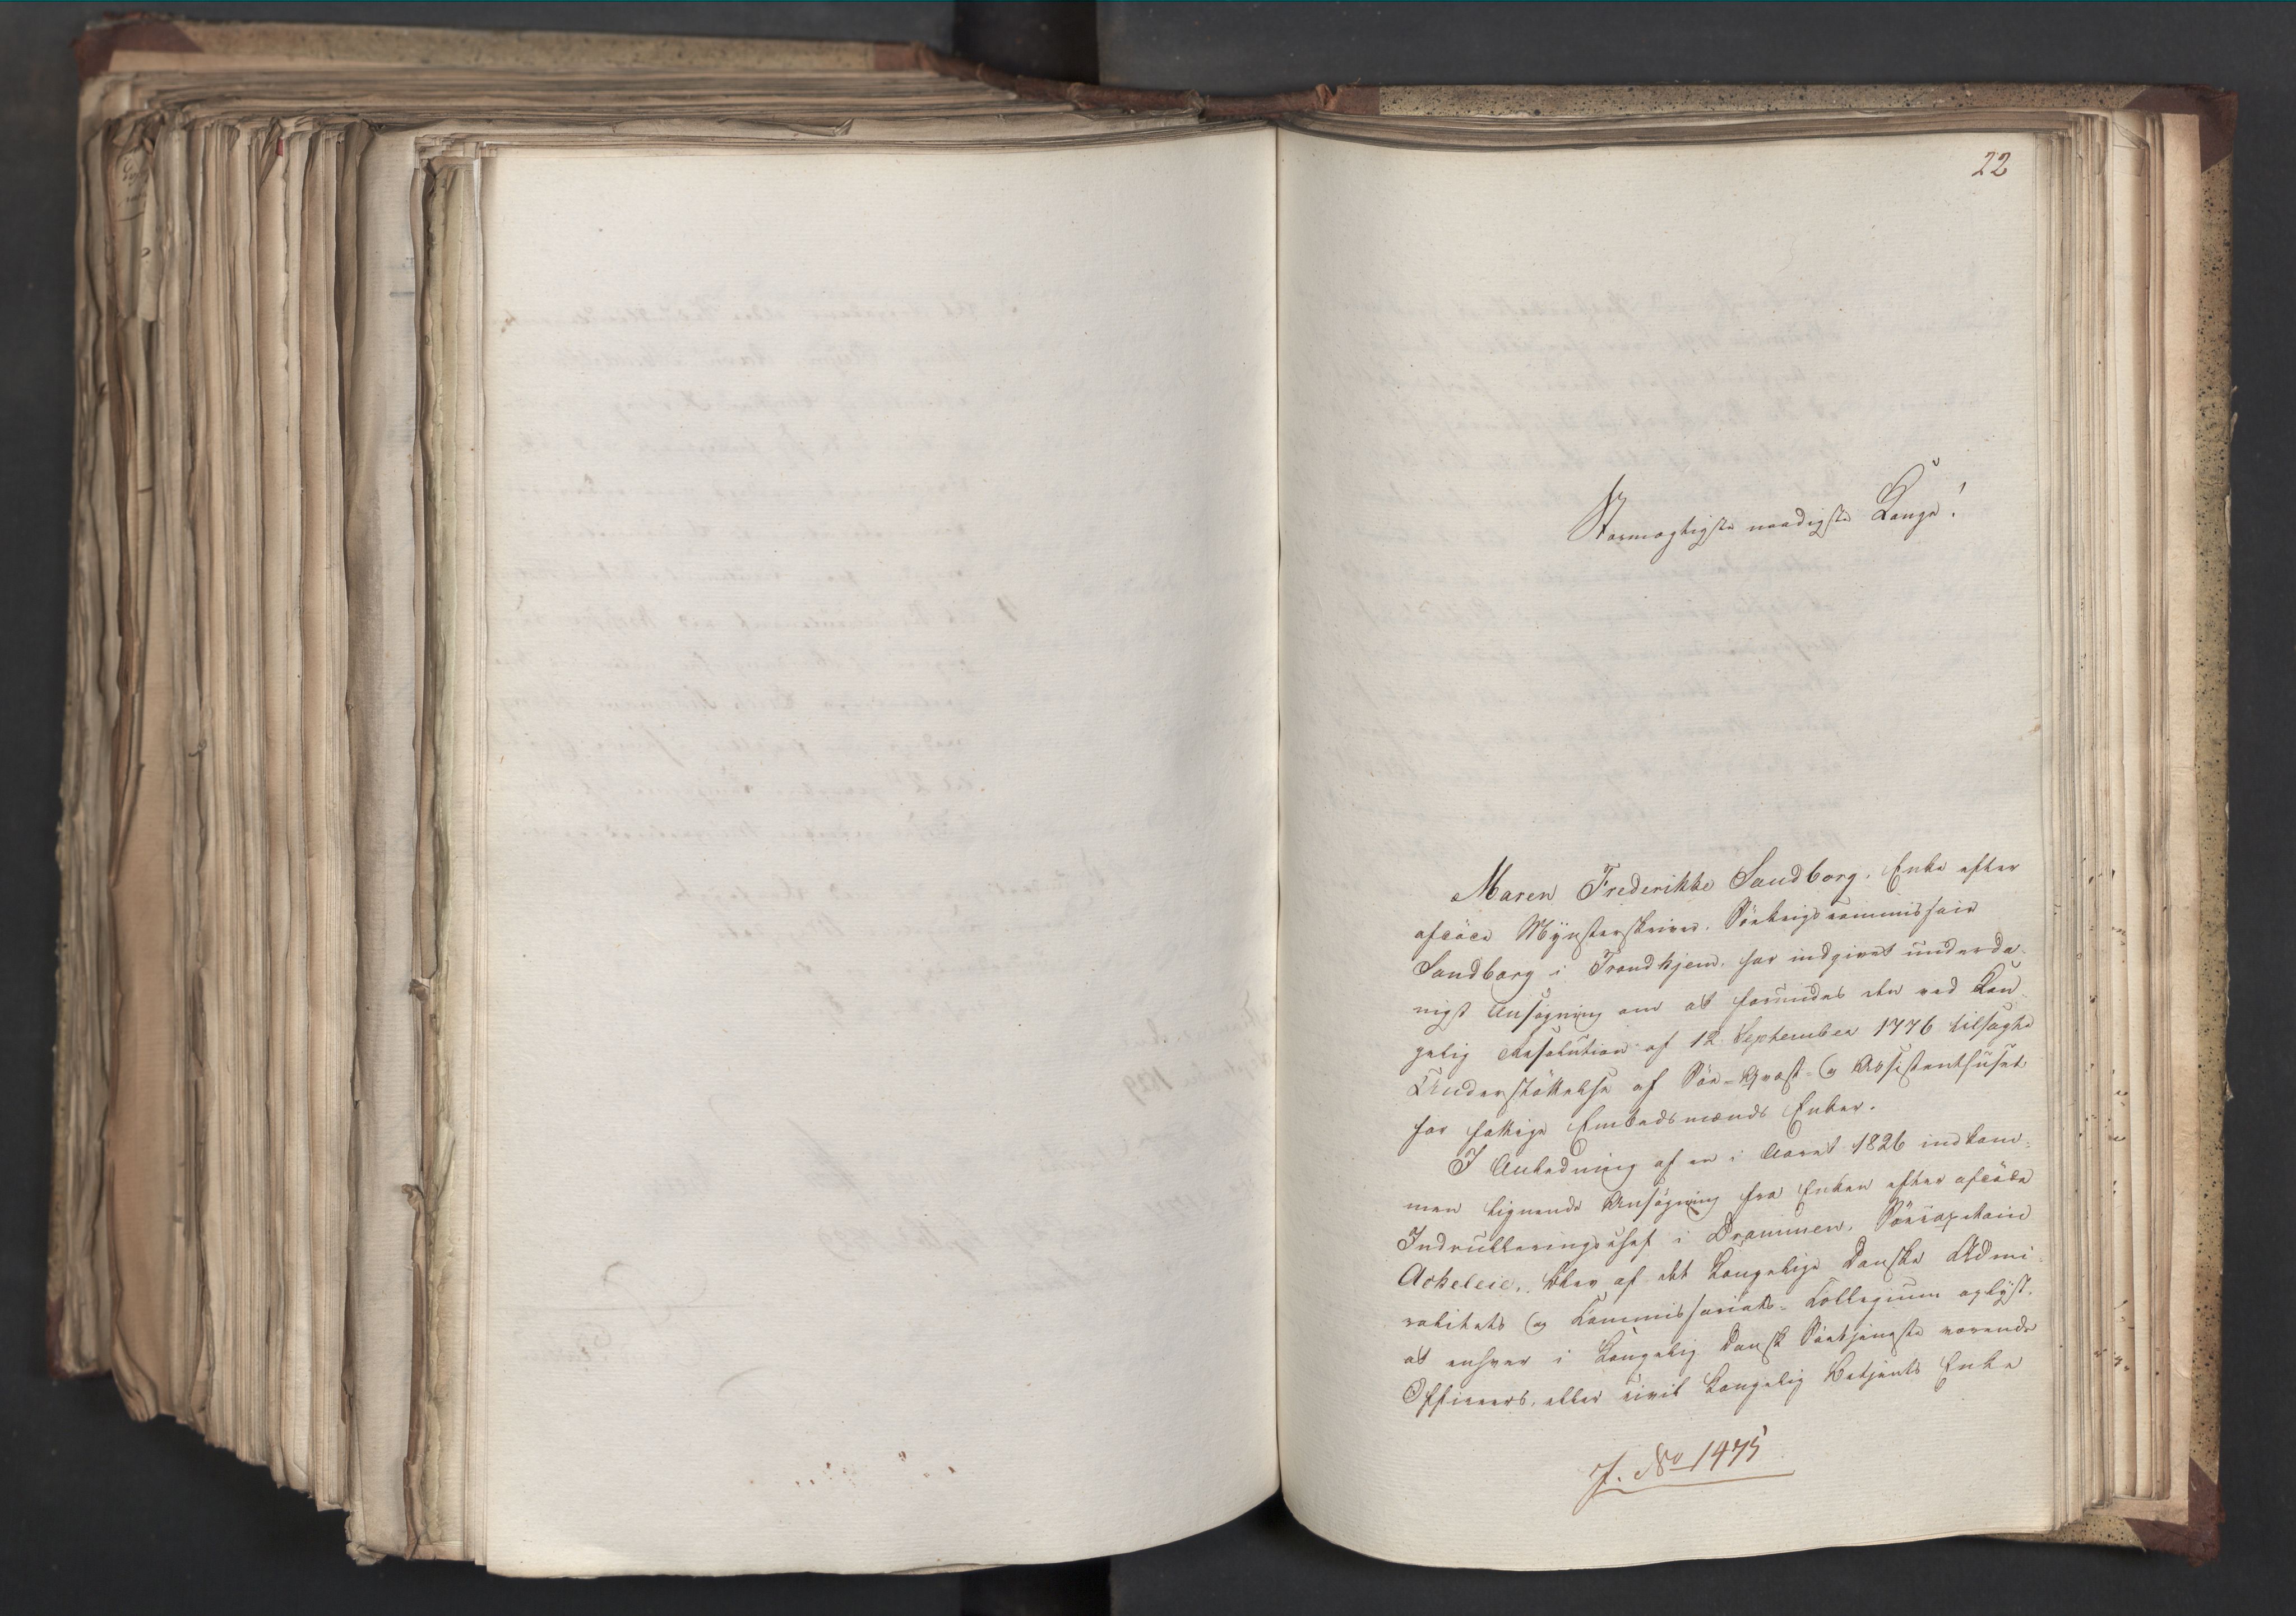 22
Stormægtigste naadigste Konge!
Maren Frederikke Sandborg, Enke efter
afdöde Mÿnsterskriver, Söekrigscommissair
Sandborg i Trondhjem, har indgivet underda-
nigst Ansögning om at forundes den ved Kon-
gelig Resolution af 12 September 1776 tilsagte
Understöttelse af Söe-Qvæst- og Assistenthuset
for fattige Embedsmænds Enker.
I Anledning af en i Aaret 1826 indkom-
men lignende Ansögning fra Enken efter afdöde
Indrulleringschef i Drammen, Söecapitain
Ackeleie, blev af det Kongelige Danske Admi-
ralitets og Commissariats-Collegium oplÿst,
at enhver i Kongelig Dansk Söetjeneste værende
Officeers, eller civil Kongelig Betjents Enke
J. No 1475